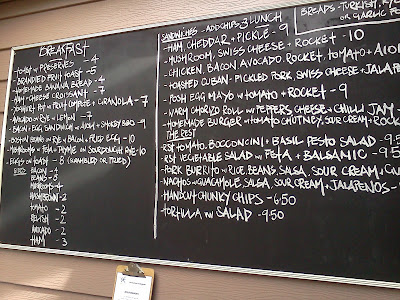 BREAKFAST
- TOAST w PRESERVES - 4
- BRANDIED FRUIT TOAST - 5
- HOMEMADE BANANA BREAD - 4
- HAM + CHEESE CROISSANT - 7
FRUIT COMPOTE + GRANOLA - 7
- AVOCADO ON RYE w LEMON - 7
- BACON + EGG SANDWICH w AIOLI + SMOKEY BBQ - 9
- BOSTON BEANS ON RYE w BACON + FRIED EGG - 10
+ THYME ON SOURDOUGH RYE - 10
- EGGS ON TOAST - 8 (SCRAMBLED OR FRIED)
BACON - 4
BEANS - 3
MUSHROOMS - 4
HASHBROWN - 2
TOMATO - 2
RELISH - 2
AVOCADO - 2
HAM - 3
SANDWICHES - ADD CHIPS - 3 LUNCH
- HAM, CHEDDAR + PICKLE - 9
- MUSHROOM, SWISS CHEESE + ROCKET - 10
- CHICKEN, BACON AVOCADO, ROCKET, TOMATO + AIOLI
- TOASTED CUBAN - PICKLED PORK, SWISS CHEESE + JALAP
- POSH EGG MAYO w TOMATO + ROCKET - 9
- WARM CHORIZO ROLL w PEPPERS, CHEESE + CHILLI JAM -
- HOMEMADE BURGER w TOMATO CHUTNEY, SOUR CREAM, ROCK
THE REST
- RST TOMATO, BOCCONCINI + BASIL PESTO SALAD - 9.5
- RST VEGETABLE SALAD w FETA + BALSAMIC - 9.5
- PORK BURRITO w RICE, BEANS, SALSA, SOUR CREAM +
- NACHOS w GUACAMOLE, SALSA, SOUR CREAM + JALAPENOS -
- HANDCUT CHUNKY CHIPS - 6.50
- TORTILLA w SALAD - 9.50
BREADS - TURKISH, RYE
OR GARLIC